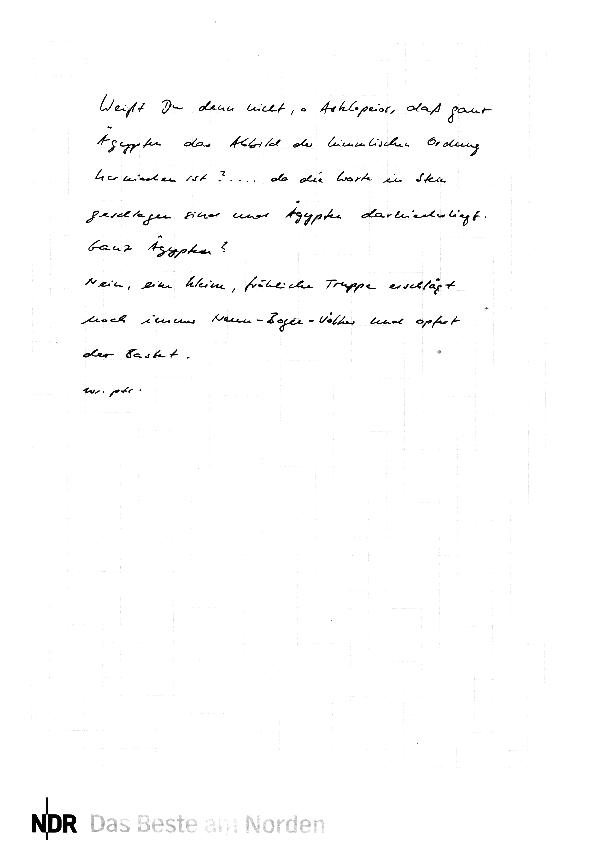 Weißt Du denn nicht, o Asklepeios, daß ganz
Ägypten das Abbild der himmlischen Ordnung
hernieden ist ? .... da die Worte in Stein
geschlagen sind und Ägypten darniederliegt.
Ganz Ägypten ?
Nein, eine kleine, fröhliche Truppe erschlägt
noch immer Neun-Bogen-Völker und opfert
der Bastet.
NDR Das Beste am Norden